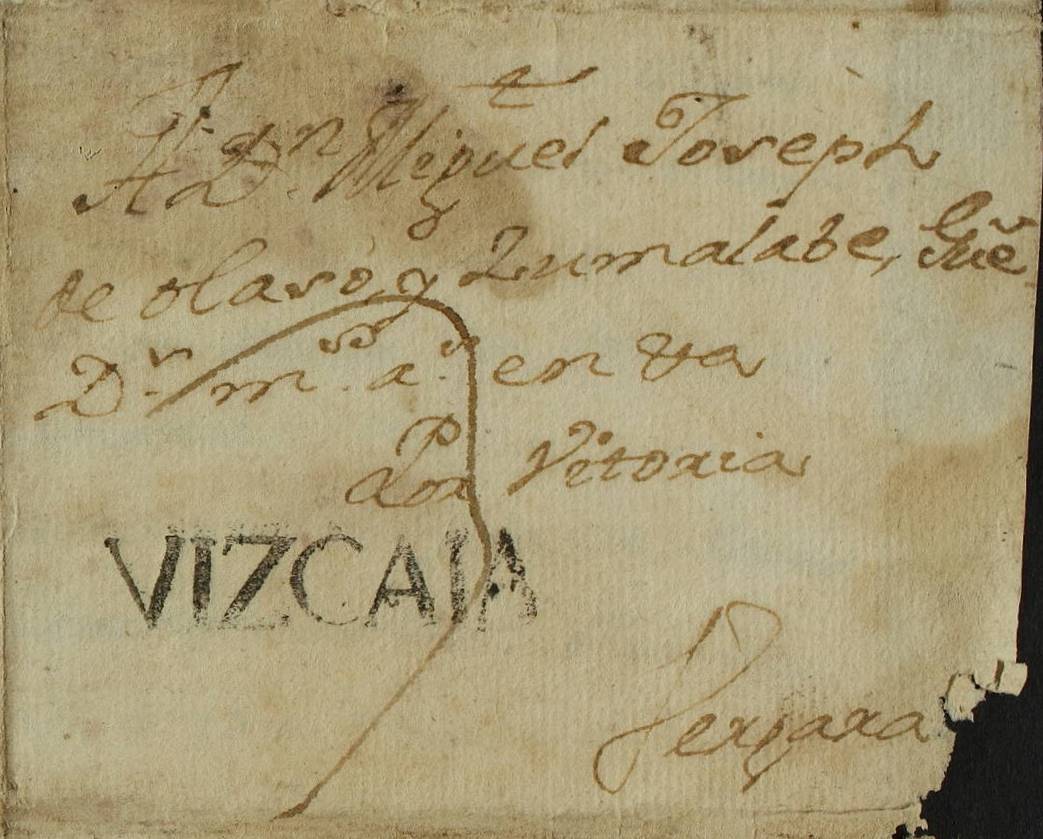 A Dn. Miguel Joseph
de olaso, y Zumalabe, Gue
Dr. ms. as. en va
Por Vitoria
VIZCAIA
Vergara